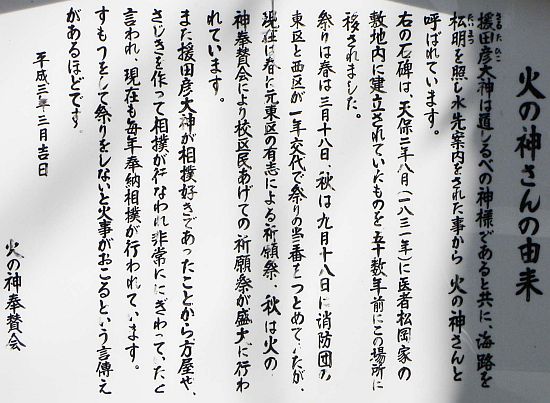 火の神さんの由来
猿田彦大神は道しるべの神様であると共に、海路を
松明を照し水先案内をされた事から 火の神さんと
呼ばれています。
右の石碑は、天保二年八月(一八三一年)に医者松岡家の
敷地内に建立されていたものを五十数年前にこの場所に
移されました。
祭りは春は三月十八日、秋は九月十八日に消防団の
東区と西区が一年交代で祭りの当番をつとめていたが、
現在は春に元東区の有志による祈願祭、秋は火の
神奉賛会により校区民あげての祈願祭が盛大に行わ
れています。
また猿田彦大神が相撲好きであったことから方屋や、
さじきを作って相撲が行なわれ非常ににぎわっていたと
言われ、現在も毎年奉納相撲が行われています。
すもうをして祭りをしないと火事がおこるという言傳え
があるほどです。
平成三年三月吉日
火の神奉賛会